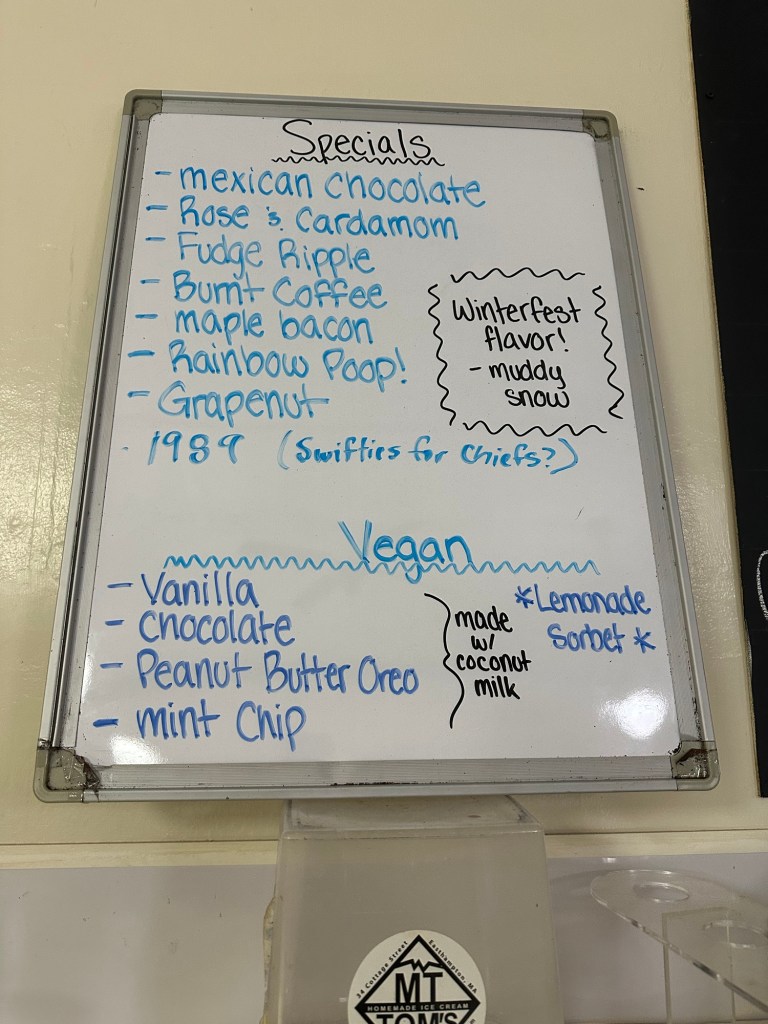 Specials
- mexican chocolate
- Rose & Cardamom
- Fudge Ripple
- Burnt Coffee
- maple bacon
- Rainbow Poop!
- Grapenut
- 1989 (Swifties for Chiefs?)
Winterfest
flavor!
- muddy
snow
Vegan
- Vanilla
- Chocolate
- Peanut Butter Oreo
- mint Chip
made
w/
coconut
milk
*Lemonade
Sorbet*
34 Cottage Street Easthampton, MA
MT
HOMEMADE ICE CREAM
TOM'S